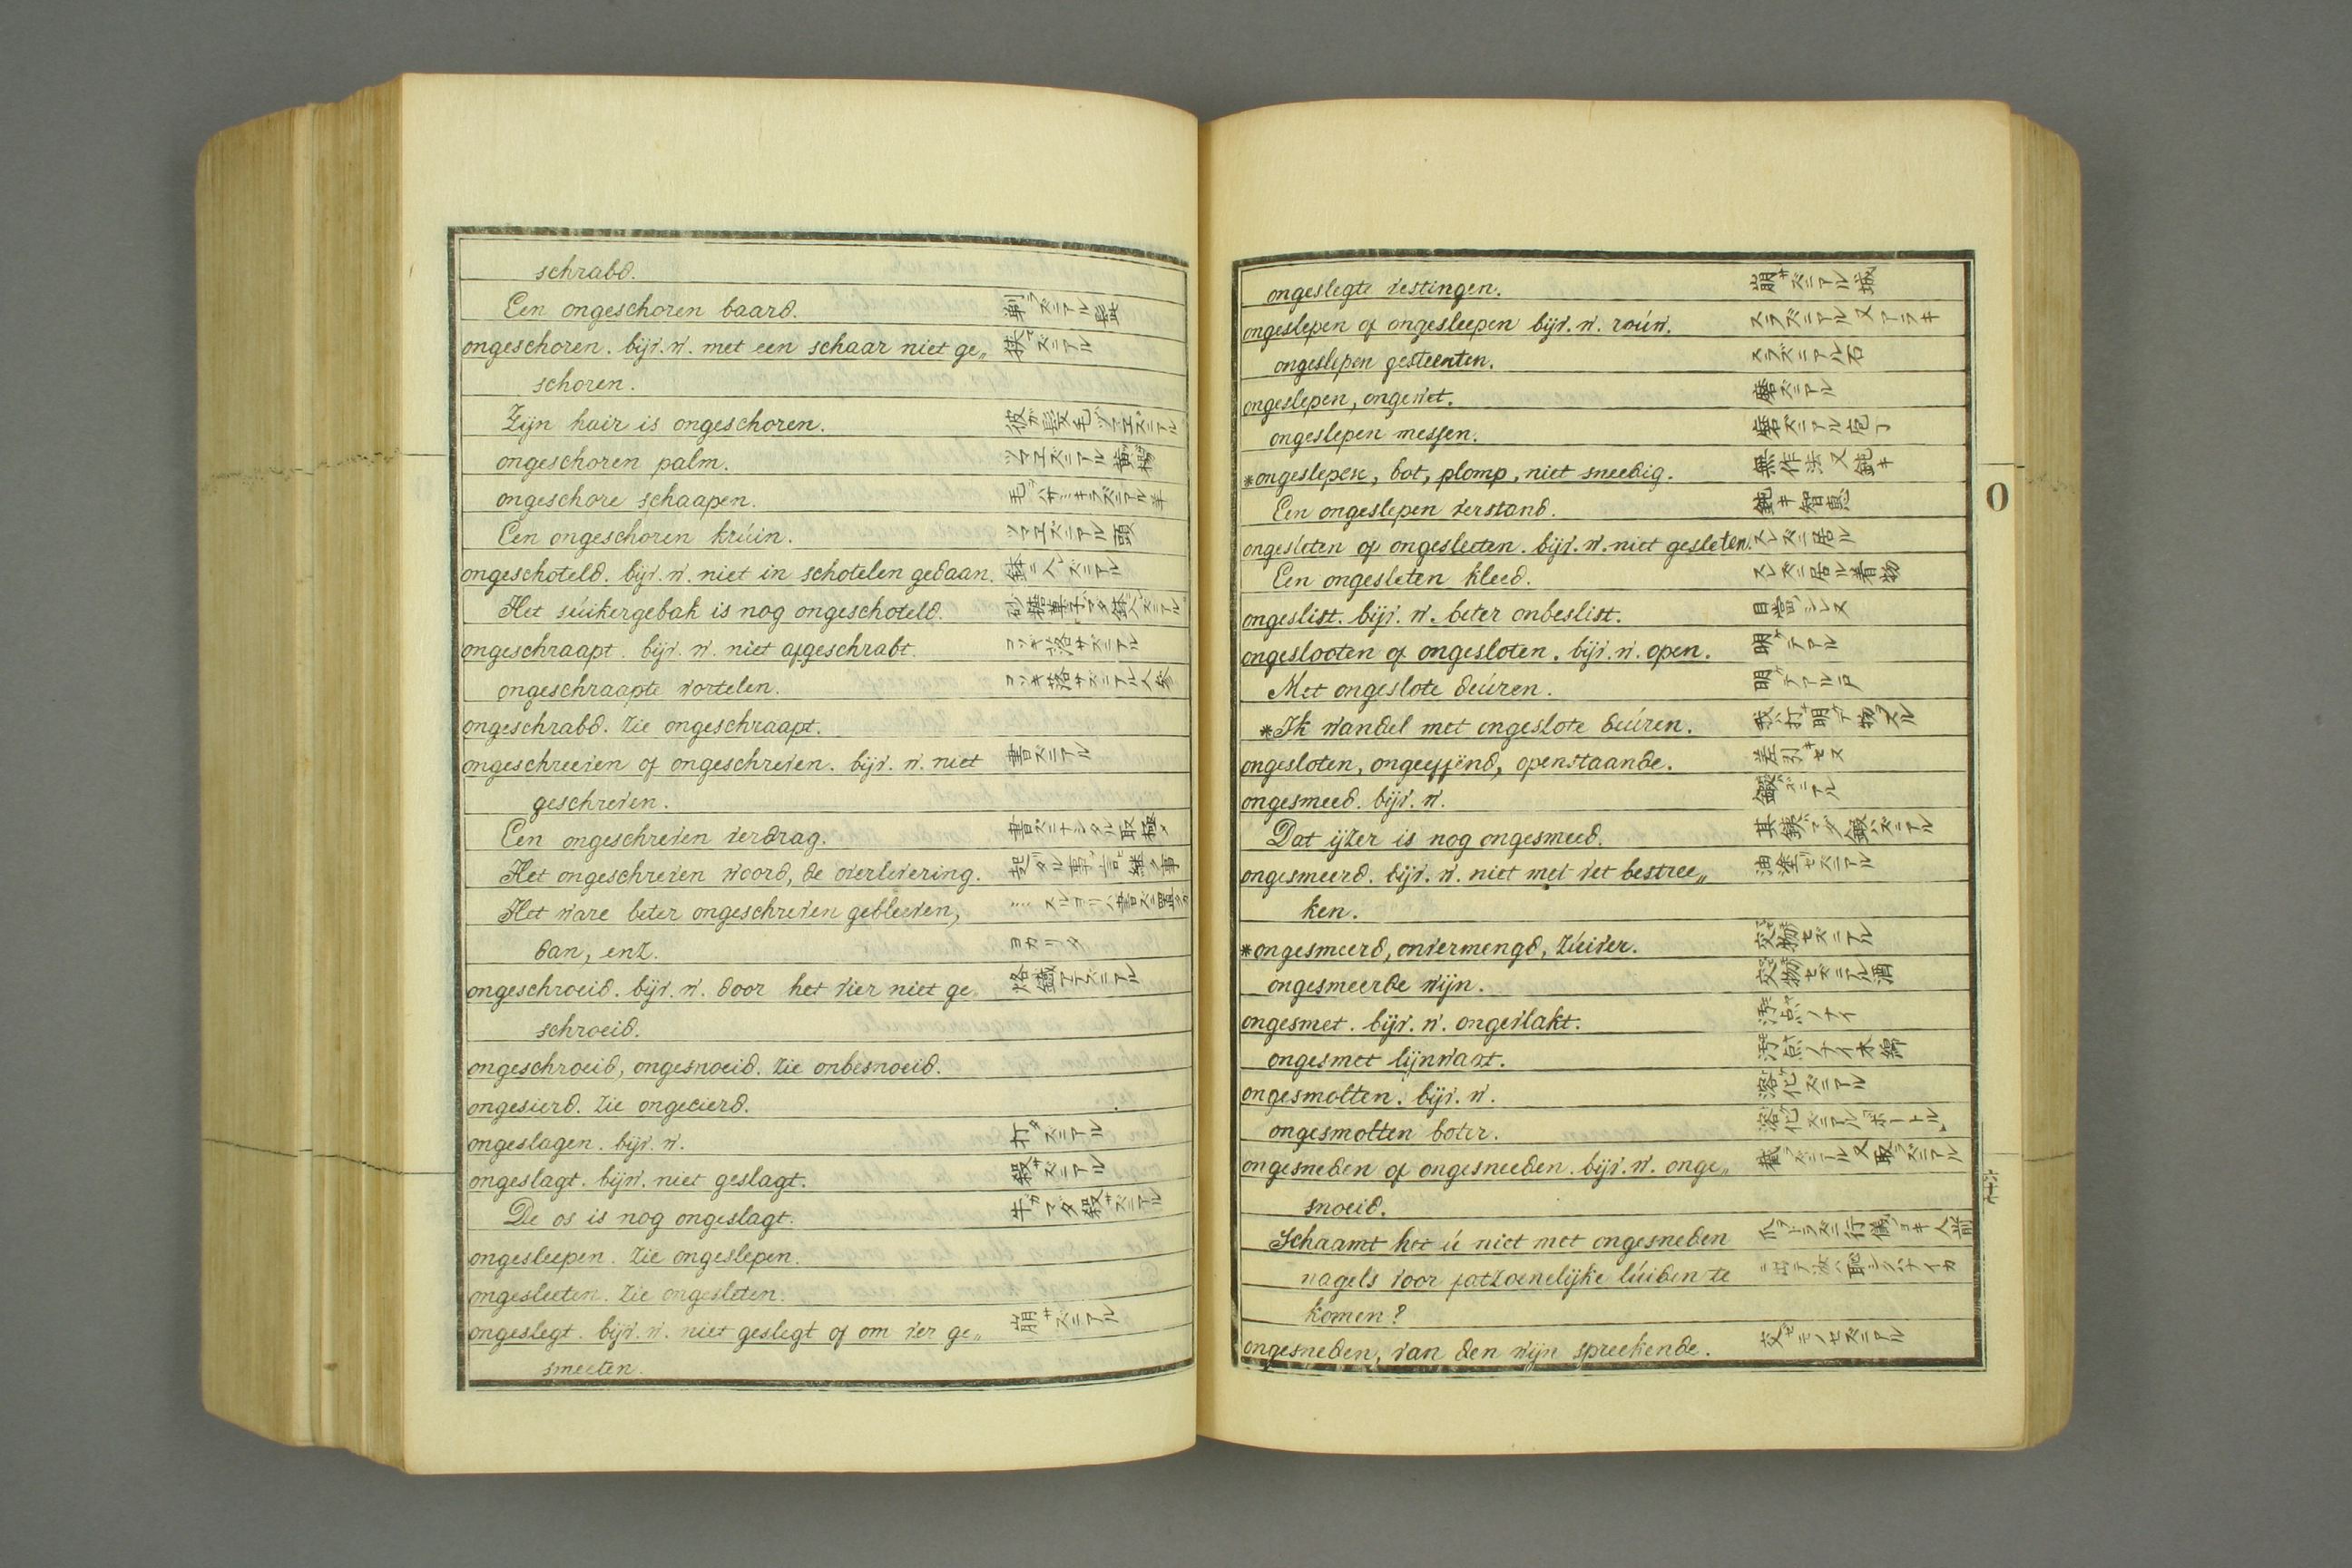 schrabd.
Een ongeschoren baard. 剃ラズニアル髭
ongeschoren. bijv. w. met een schaar niet ge„ ズニアル
schoren.
Zijn hair is ongeschoren. 彼ガ髪毛ツマエズニアル
ongeschoren palm. ツマエズニアル黄楊
ongeschore schaapen. 毛ヲハサミキラズニアル羊
Een ongeschoren krúin. ツマエズニアル頭
ongeschoteld. bijv. w. niet in schotelen gedaan. 鉢ニ入レズニアル
Het súikergebak is nog ongeschoteld. 砂糖菓子マダ鉢ニ入レズニアル
ongeschraapt. bijv. w. niet afgeschrabt. コソギ落サズニアル
ongeschraapte wortelen. コソギ落サズニアル人参
ongeschrabd. Zie ongeschraapt.
ongeschreeven of ongeschreven. bijv. w. niet 書ズニアル
geschreven.
Een ongeschreven verdrag. 書ズニナシタル取極メ
Het ongeschreven woord, de overlevering.
Het ware beter ongeschreven gebleeven,
dan, enz. ヨカリタ
ongeschroeid. bijv. w. door het vier niet ge„ 烙鐵アテズニアル
schroeid.
ongeschroeid, ongesnoeid. Zie onbesnoeid.
ongesierd. Zie ongecierd.
ongeslagen. bijv. w. 打タズニアル
ongeslagt. bijw. niet geslagt. 殺サズニアル
De os is nog ongeslagt. 牛ガマダ殺サズニアル
ongesleepen. Zie ongeslepen.
ongesleeten. Zie ongesleten.
ongeslegt. bijv. w. niet geslegt of om ver ge„ 崩サズニアル
smeeten.
ongeslegte vestingen. 崩サズニアル城
ongeslepen of ongesleepen bijv. w. roúw. スラズニアル又アラキ
ongeslepen gesteenten. スラズニアル石
ongeslepen, ongewet. 磨ズニアル
ongeslepen messen. 磨ズニアル庖丁
*ongeslepen, bot, plomp, niet sneedig. 無作法又鈍キ
Een ongeslepen verstand. 鈍キ智恵
ongesleten of ongesleeten. bijv. w. niet gesleten. スレズニ居ル
Een ongesleten kleed. スレズニ居ル着物
ongeslist. bijv. w. beter onbeslist.
ongeslooten of ongesloten. bijv. w. open. 明ケテアル
Met ongeslote deúren. 明ケテアル戸
*Ik wandel met ongeslote deúren.
ongesloten, ongeeffend, openstaande. 差引セヌ
ongesmeed. bijv. w. 鍛ハズニアル
Dat ijzer is nog ongesmeed. 其鉄ハマダ鍛ハズニアル
ongesmeerd. bijv. w. niet met vet bestree„ 油塗セズニアル
ken.
*ongesmeerd, onvermengd, Zúiver. 交物セズニアル
ongesmeerde wijn. 交物セズニアル酒
ongesmet. bijv. w. ongevlakt. 汚点ノナイ
ongesmet lijnwart. 汚点ノナイ木綿
ongesmolten. bijv. w. 溶化ズニアル
ongesmolten boter. 溶化ズニアルボートル
ongesneden of ongesneeden. bijv. w. onge„ 截ラズニアル又取ラズニアル
snoeid.
Schaamt het ú niet met ongesneden 爪ヲトラズニ行儀ヨキ人前
nagels voor fatzoenelijke lúiden te ニ出テ汝ハ恥シクハナイカ
komen?
ongesneden, van den wijn spreekende. 交ゼモノセズニアル
O